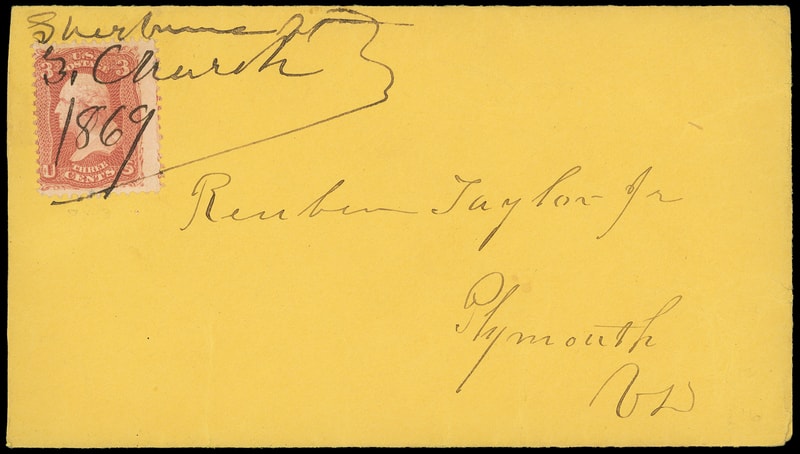 Sherburne Vt
3, Church
1869
U.S.
POSTAGE
3 3
THREE
CENTS
U S
Reuben Taylor Jr
Plymouth
Vt